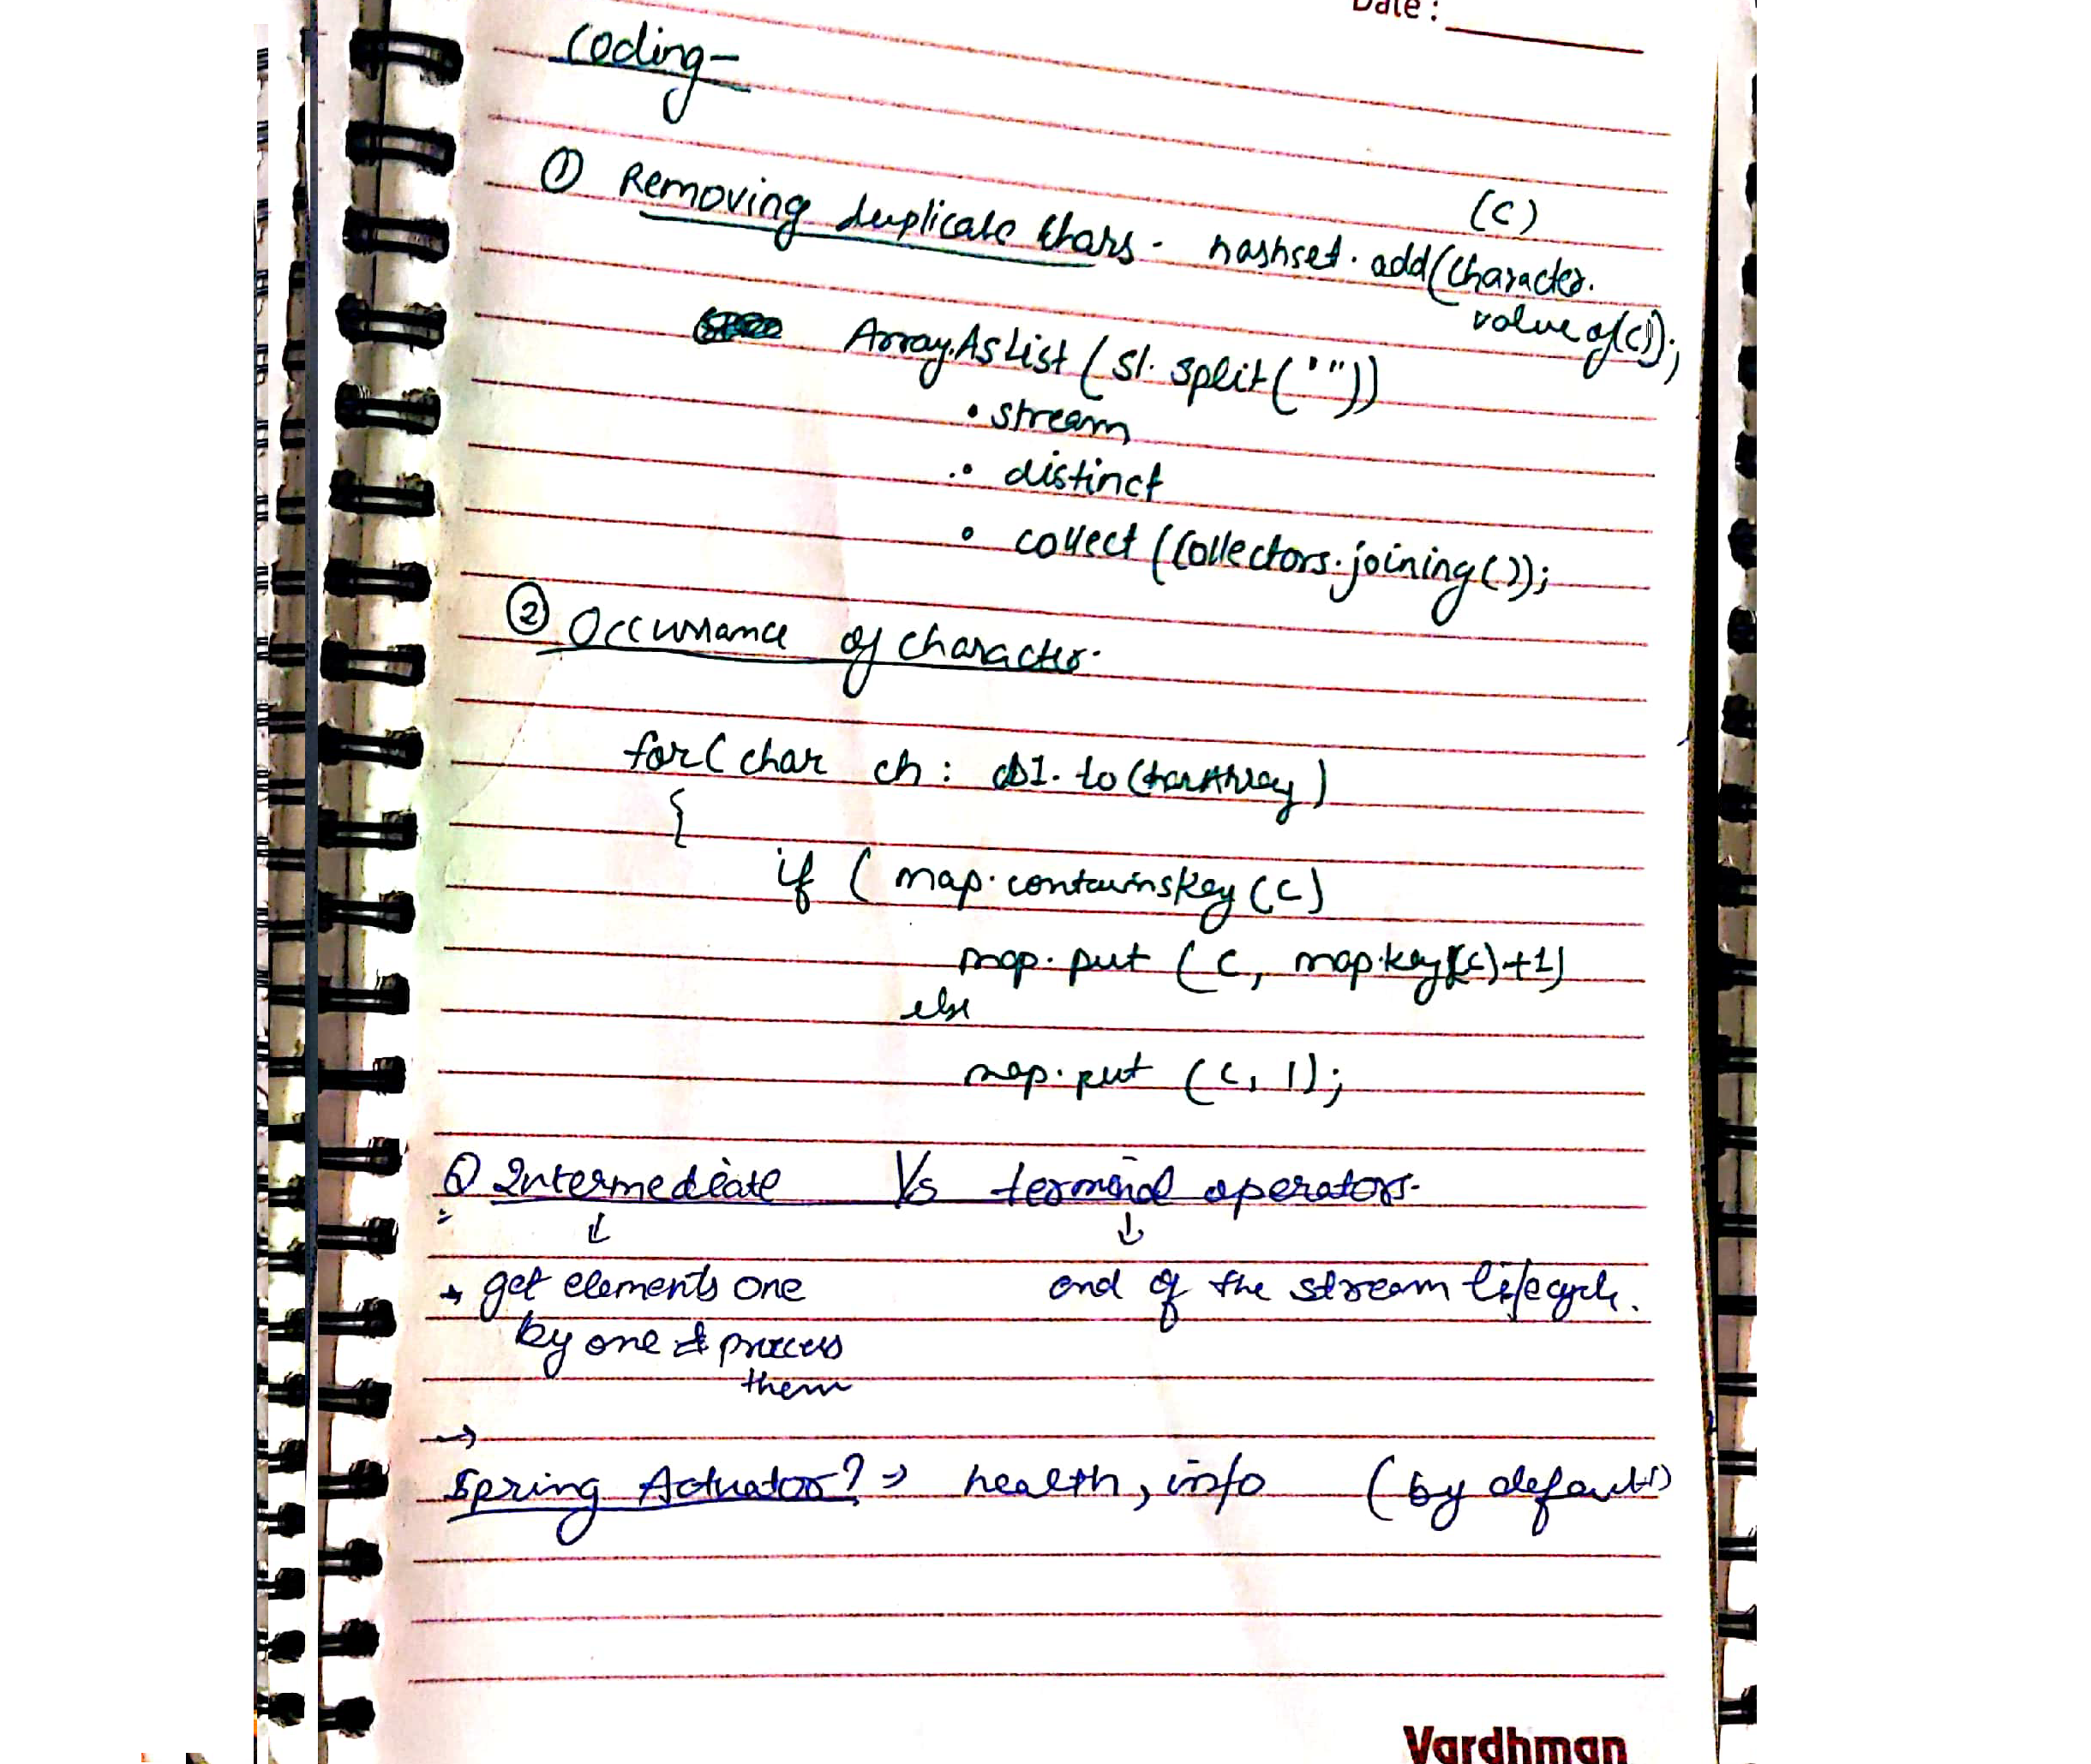 Date :
Coding -
① Removing duplicate chars - hashset.add(Character.
(c)
value of(c));
Array.AsList (s1. split(" "))
• stream
• distinct
• collect (Collectors.joining());
② Occurrance of character.
for( char ch : s1. to CharArray )
{
if ( map.containsKey (c)
map. put ( c, map.key(c)+1)
else
map.put (c, 1);
Q Intermediate Vs terminal operators.
↓ ↓
→ get elements one end of the stream lifecycle.
by one & process
them
→
Spring Actuator? → health, info (by default)
Vardhman